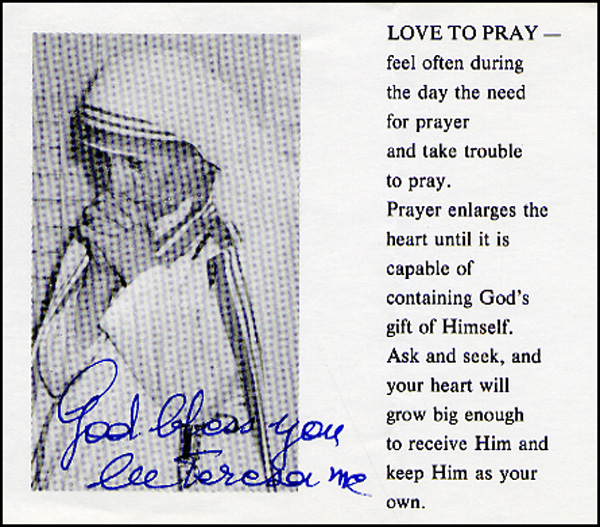 LOVE TO PRAY —
feel often during
the day the need
for prayer
and take trouble
to pray.
Prayer enlarges the
heart until it is
capable of
containing God's
gift of Himself.
Ask and seek, and
your heart will
grow big enough
to receive Him and
keep Him as your
own.
God bless you
lee Teresa mc